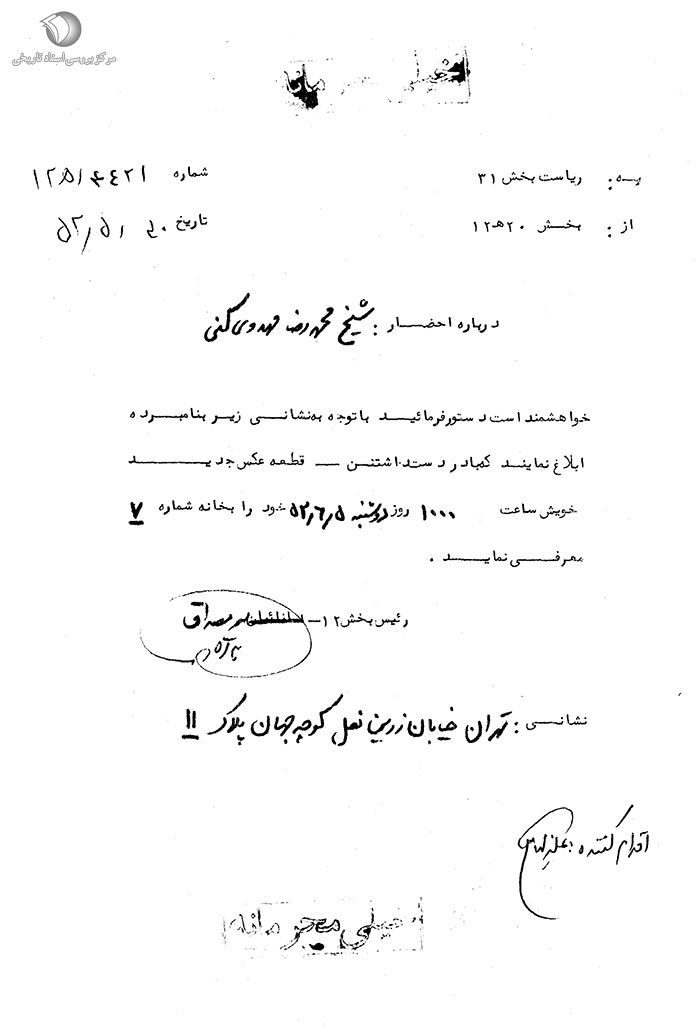 مرکز بررسی اسناد تاریخی
خیلی محرمانه
به: ریاست بخش ۳۱
شماره ۱۲۵/۴۴۲۱
از: بخش ۲۰هـ۱۲
تاریخ ۳۰/۵/۵۲
درباره احضار: شیخ محمد رضا مهدوی کنی
خواهشمند است دستور فرمائید با توجه به نشانی زیر بنامبرده
ابلاغ نمایند که با در دست داشتن — قطعه عکس جدید
خویش ساعت ۱۰۰۰ روز دوشنبه ۵۲/۶/۵ خود را بخانه شماره ۷
معرفی نماید.
رئیس بخش ۱۲—
نشانی: تهران خیابان زرین نعل کوچه جهان پلاک ۱۱
اقدام کننده:
خیلی محرمانه